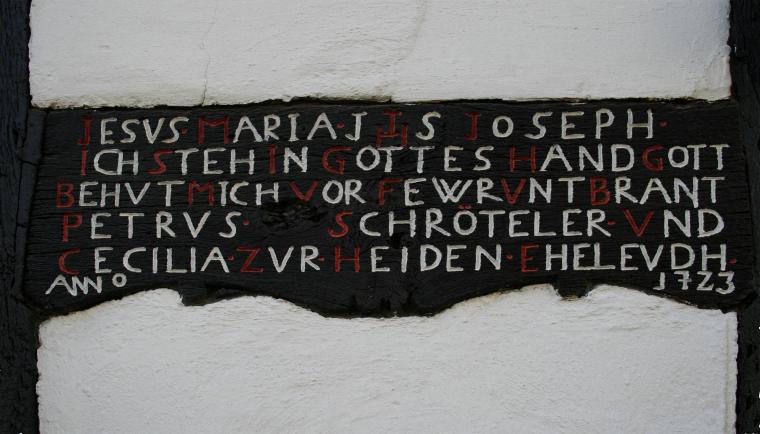 JESVS·MARIA·J IHS JOSEPH·
ICH STEH IN GOTTES HAND GOTT
BEHVT MICH VOR FEWR VNT BRANT
PETRVS· SCHRÖTELER·VND
CECILIA·ZVR·HEIDEN·EHELEVDH·
ANNO 1723